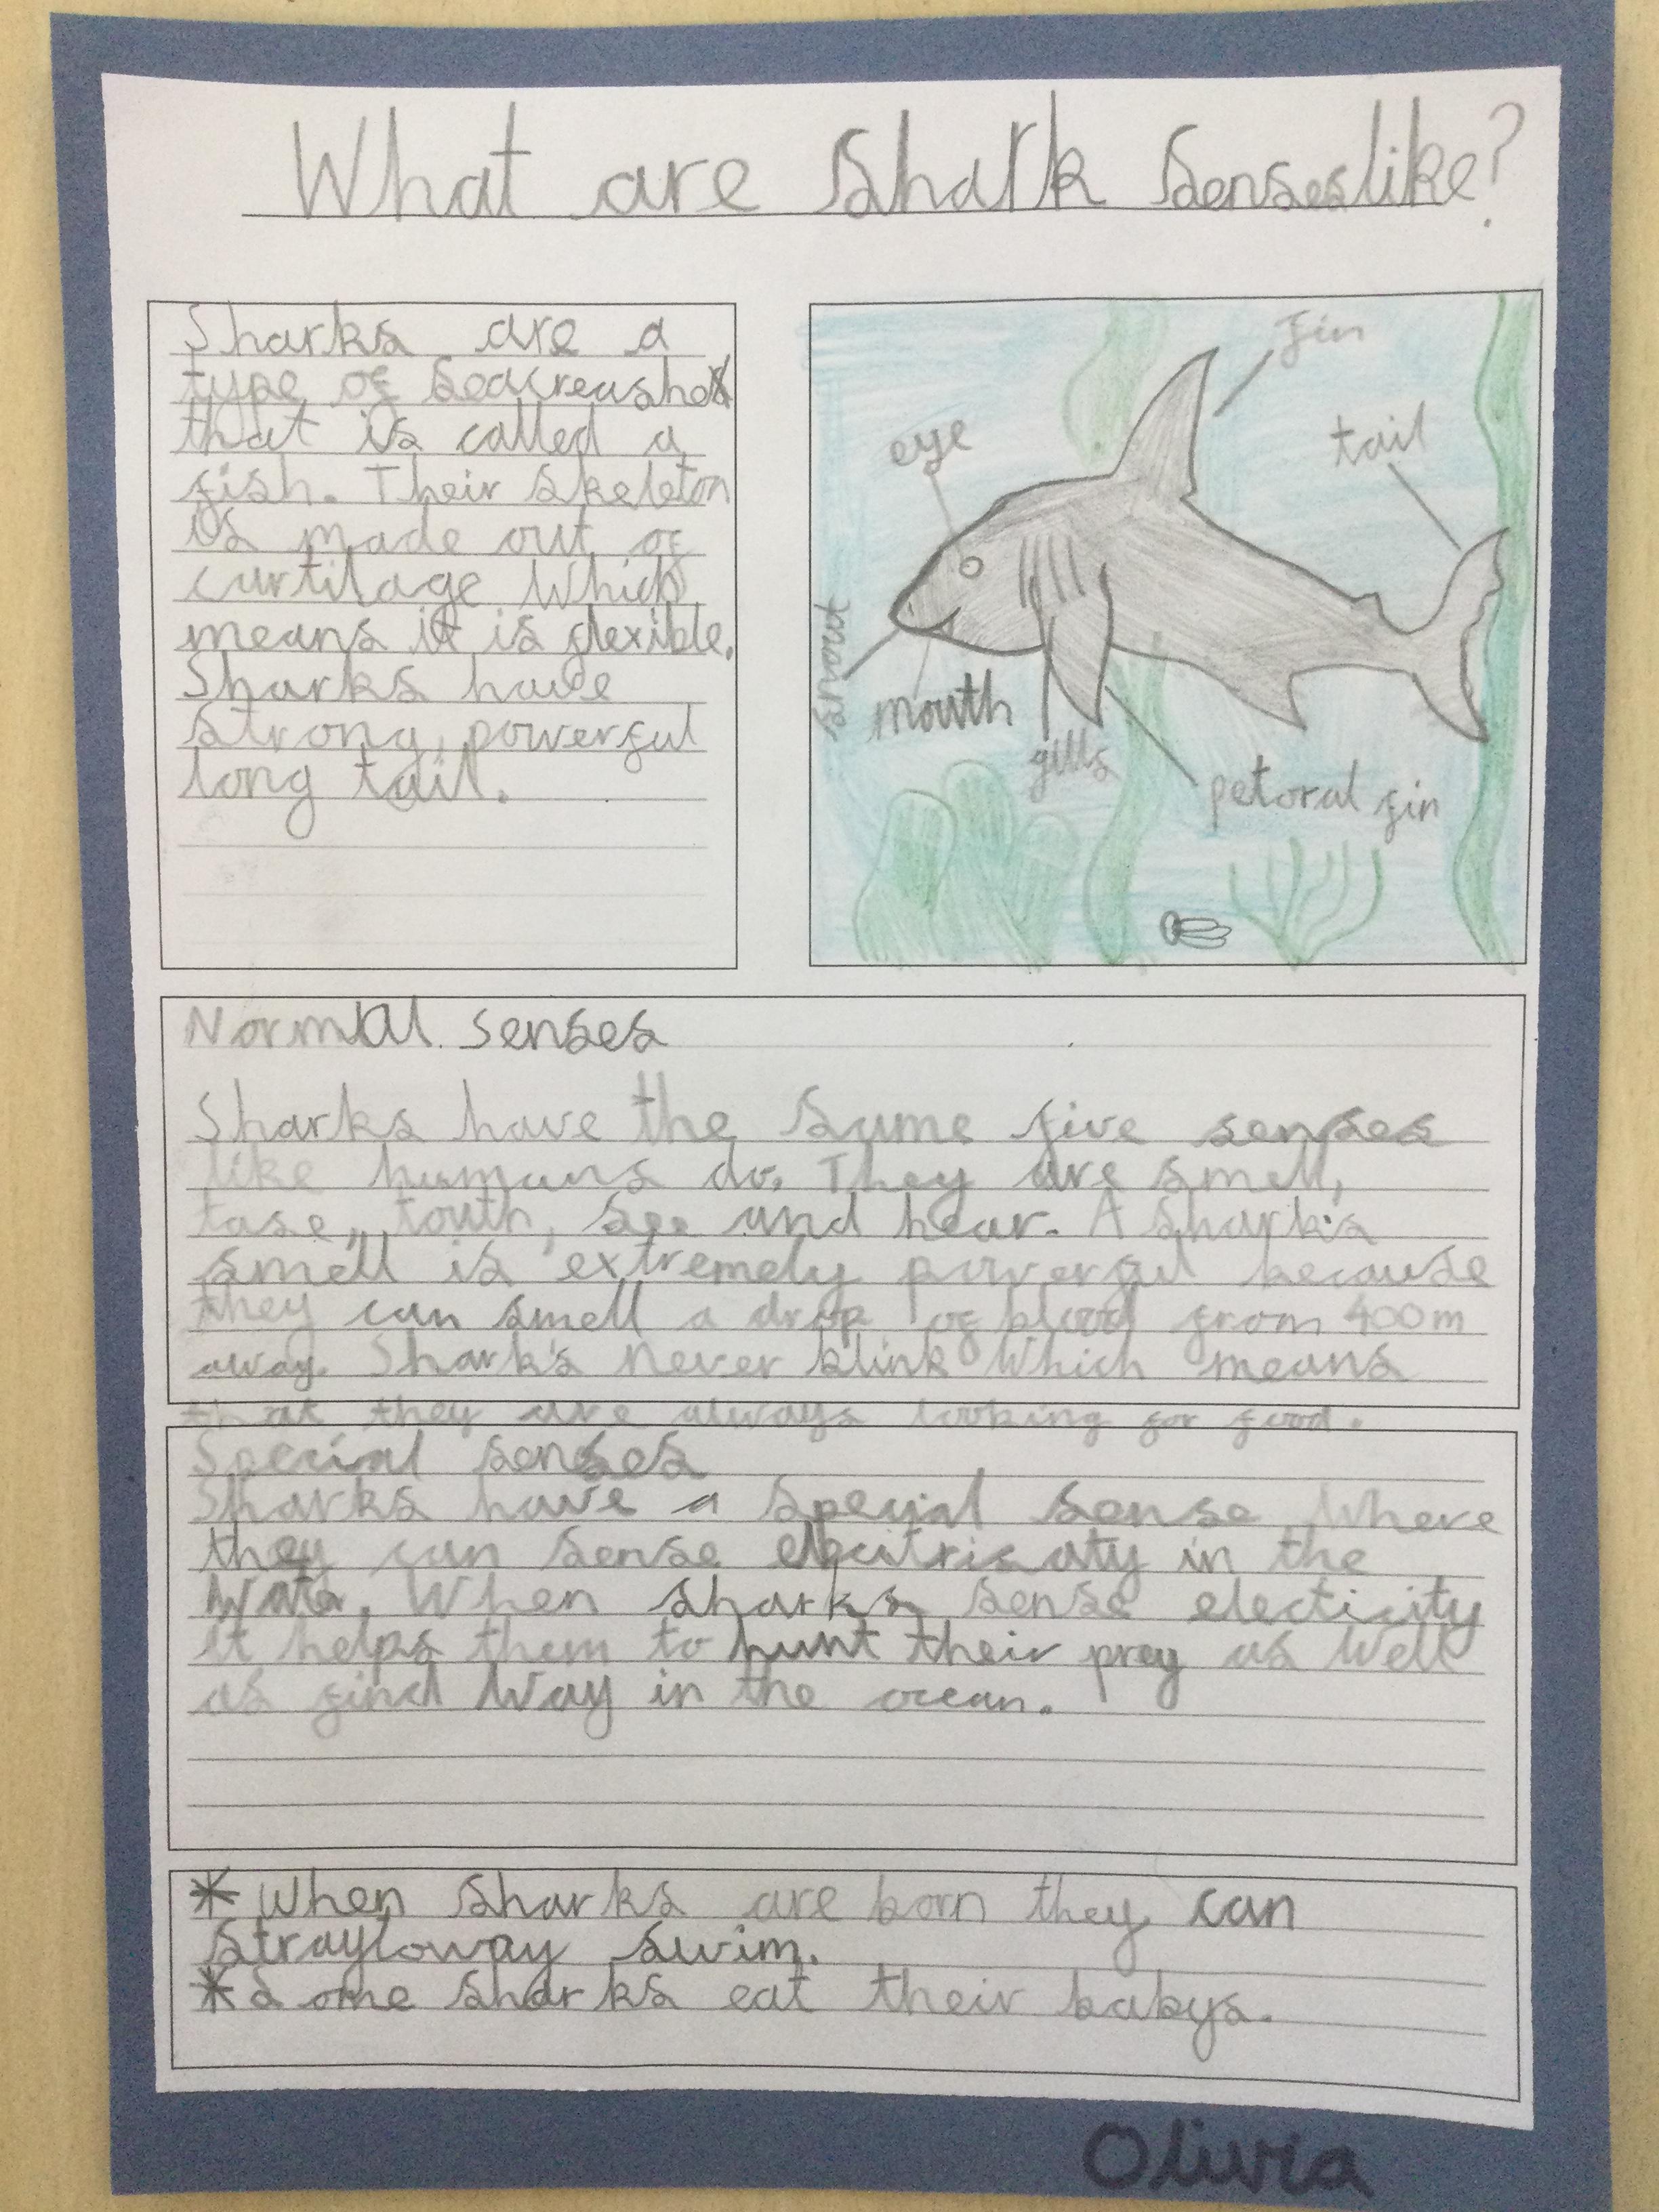 What are Shark Senses like?
Sharks are a
type of Seacreashe
that is called a
fish. Their skeleton
is made out of
cartilage which
means it is flexible.
Sharks have
strong, powerful
long tail.
fin
eye
tail
mouth
gills
petoral fin
Normal senses
Sharks have the same five senses
like humans do. They are smell,
tase, touth, see and hear. A shark's
smell is extremely powerful because
they can smell a drop of blood from 400m
away. Shark's never blink which means
that they are always looking for food.
Special senses
Sharks have a special sense where
they can sense in the
When sharks sense electicity
it helps them to hunt their prey as well
as find way in the ocean.
* When sharks are born they can
swim.
* Some sharks eat their babys.
Olivia